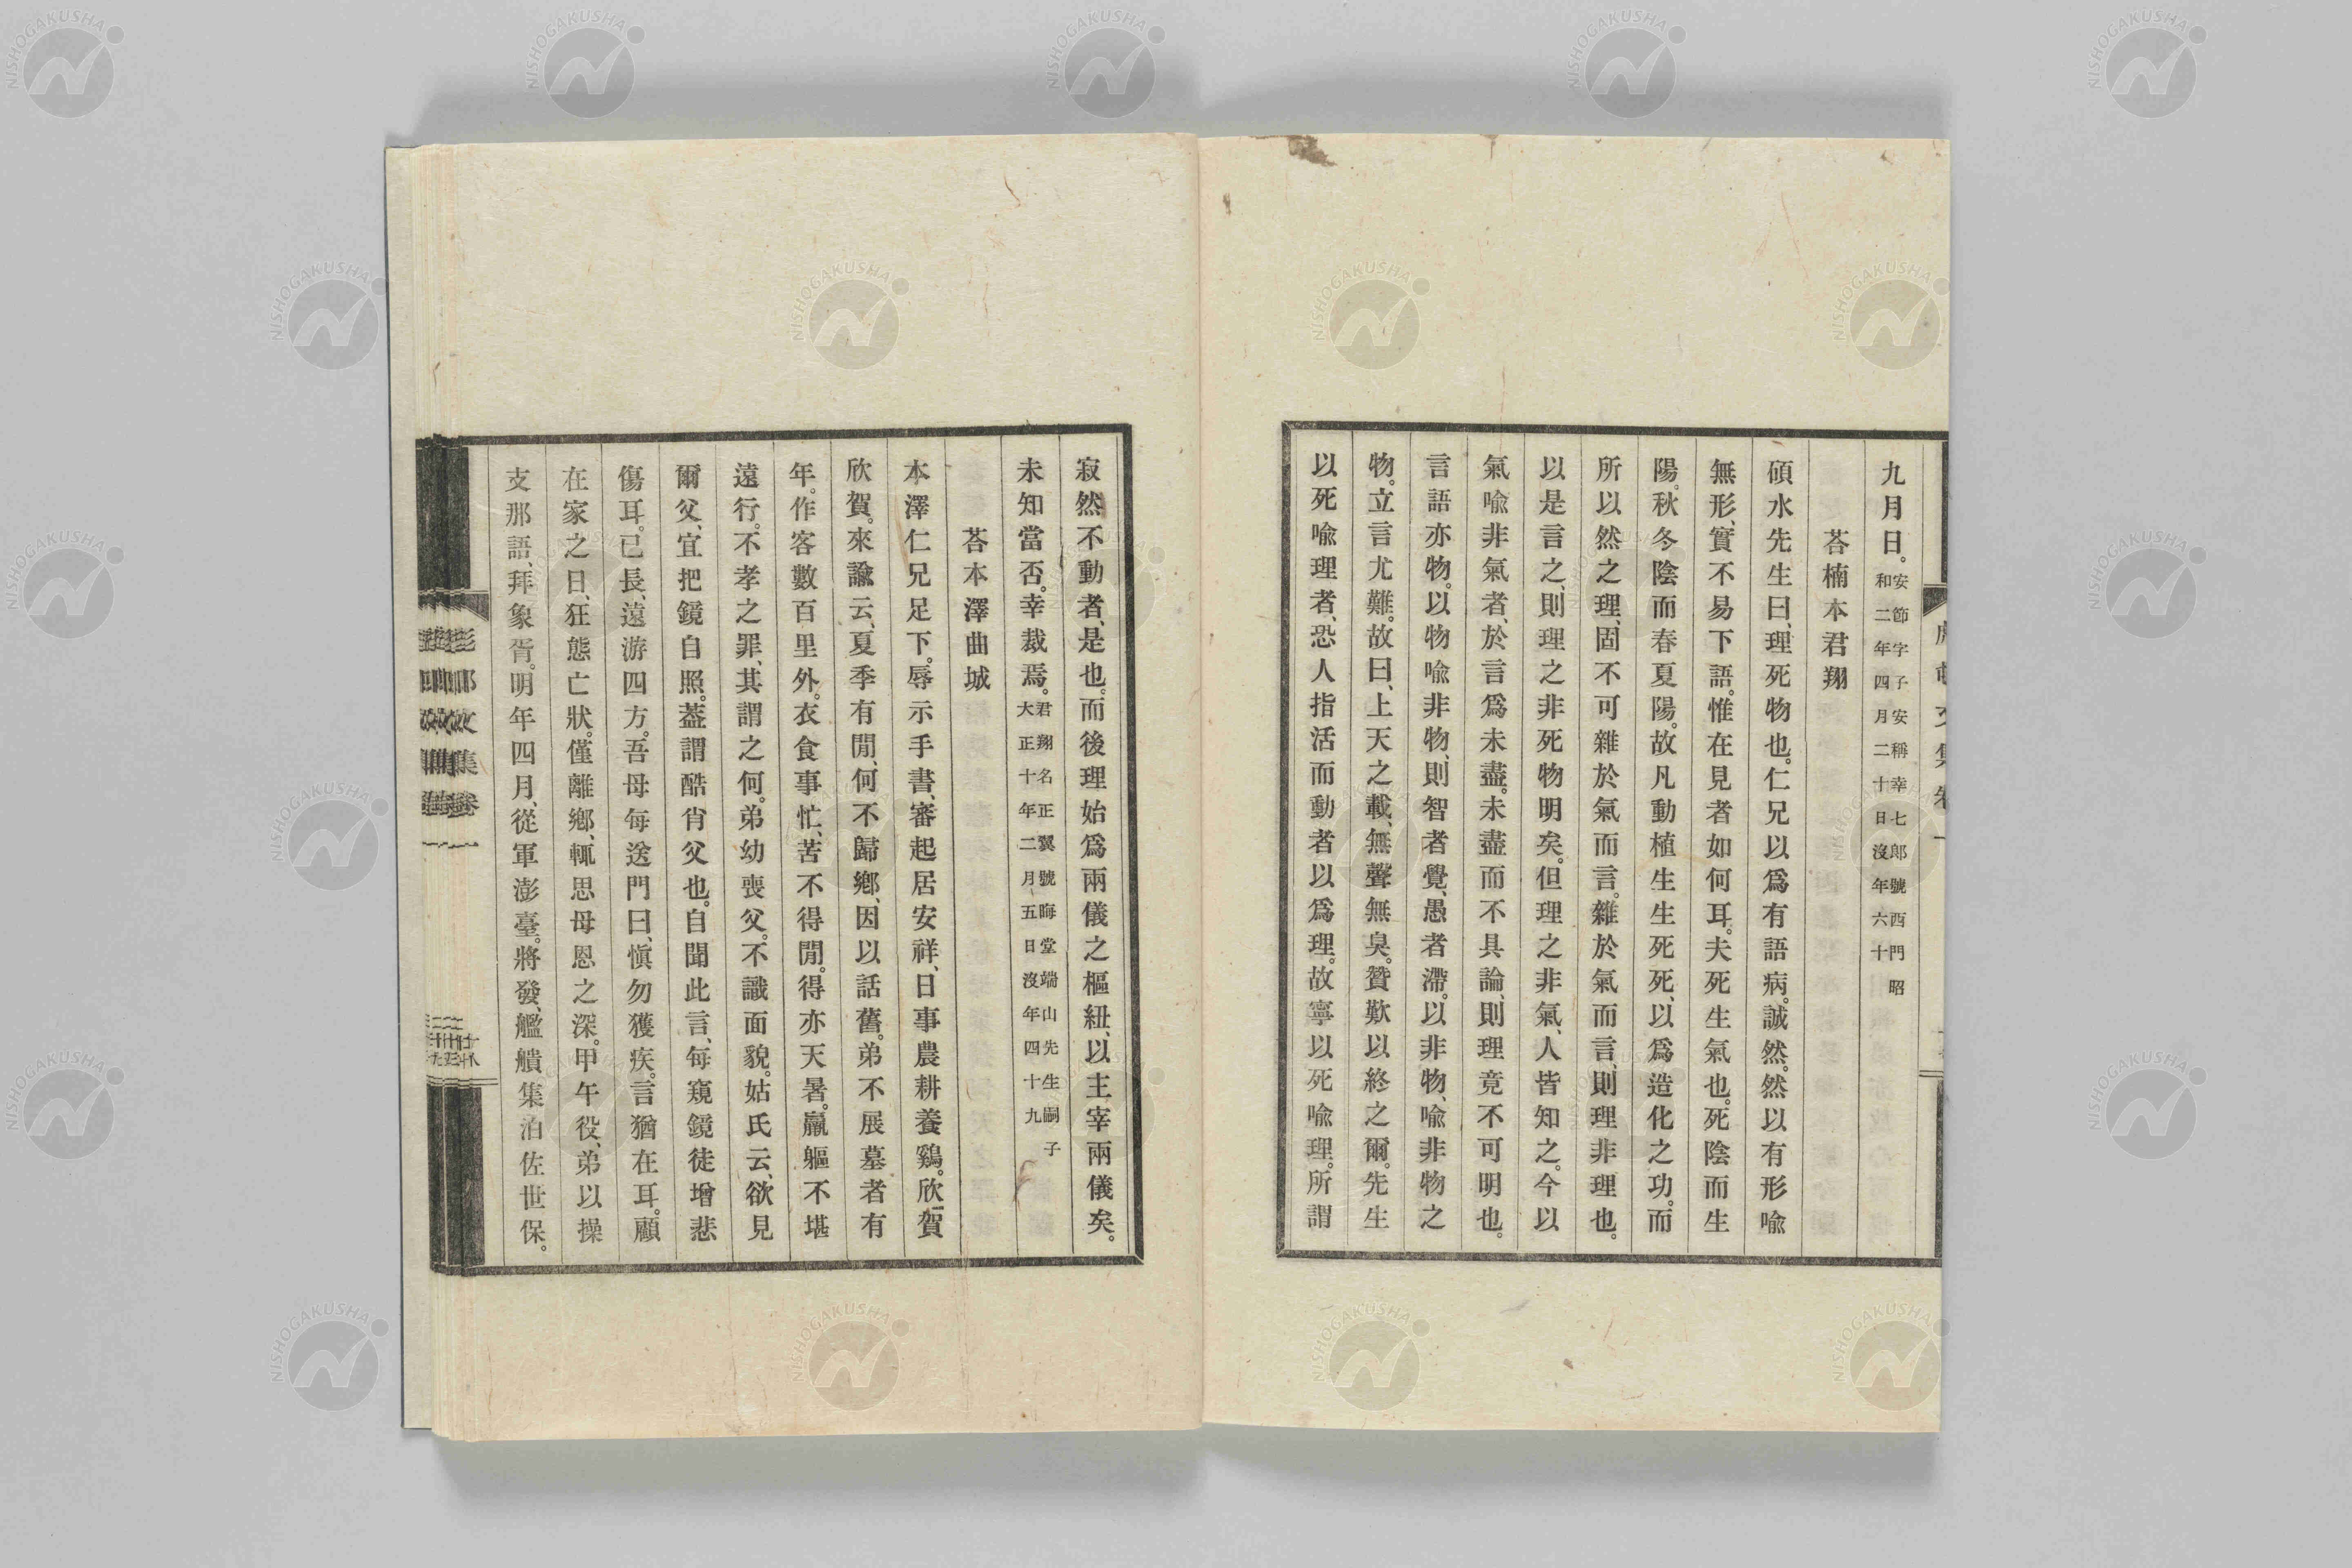 九月日。安節字子安稱幸七郎號西門昭和二年四月二十日沒年六十
荅楠本君翔
碩水先生曰、理死物也。仁兄以爲有語病。誠然。然以有形喩
無形、實不易下語。惟在見者如何耳。夫死生氣也。死陰而生
陽。秋冬陰而春夏陽。故凡動植生生死死、以爲造化之功。而
所以然之理、固不可雜於氣而言。雜於氣而言、則理非理也。
以是言之、則理之非死物明矣。但理之非氣、人皆知之。今以
氣喩非氣者、於言爲未盡。未盡而不具論、則理竟不可明也。
言語亦物。以物喩非物、則智者覺、愚者滯。以非物、喩非物之
物。立言尤難。故曰、上天之載、無聲無臭。贊歎以終之爾。先生
以死喩理者、恐人指活而動者以爲理。故寧以死喩理。所謂
寂然不動者、是也。而後理始爲兩儀之樞紐、以主宰兩儀矣。
未知當否。幸裁焉。君翔名正翼號晦堂端山先生嗣子大正十年二月五日沒年四十九
荅本澤曲城
本澤仁兄足下。辱示手書、審起居安祥、日事農耕養鷄。欣賀
欣賀。來諭云、夏季有閒、何不歸鄕、因以話舊。弟不展墓者有
年。作客數百里外。衣食事忙、苦不得閒。得亦天暑。羸軀不堪
遠行。不孝之罪、其謂之何。弟幼喪父。不識面貌。姑氏云、欲見
爾父、宜把鏡自照。蓋謂酷肖父也。自聞此言、每窺鏡徒增悲
傷耳。已長、遠游四方。吾母每送門曰、愼勿獲疾。言猶在耳。顧
在家之日、狂態亡狀。僅離鄕、輒思母恩之深。甲午役、弟以操
支那語、拜象胥。明年四月、從軍澎臺。將發、艦艨集泊佐世保。